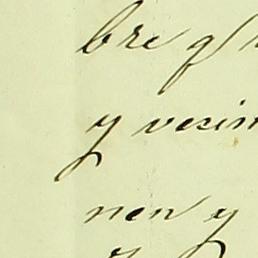 bre q
y vecin
nen y